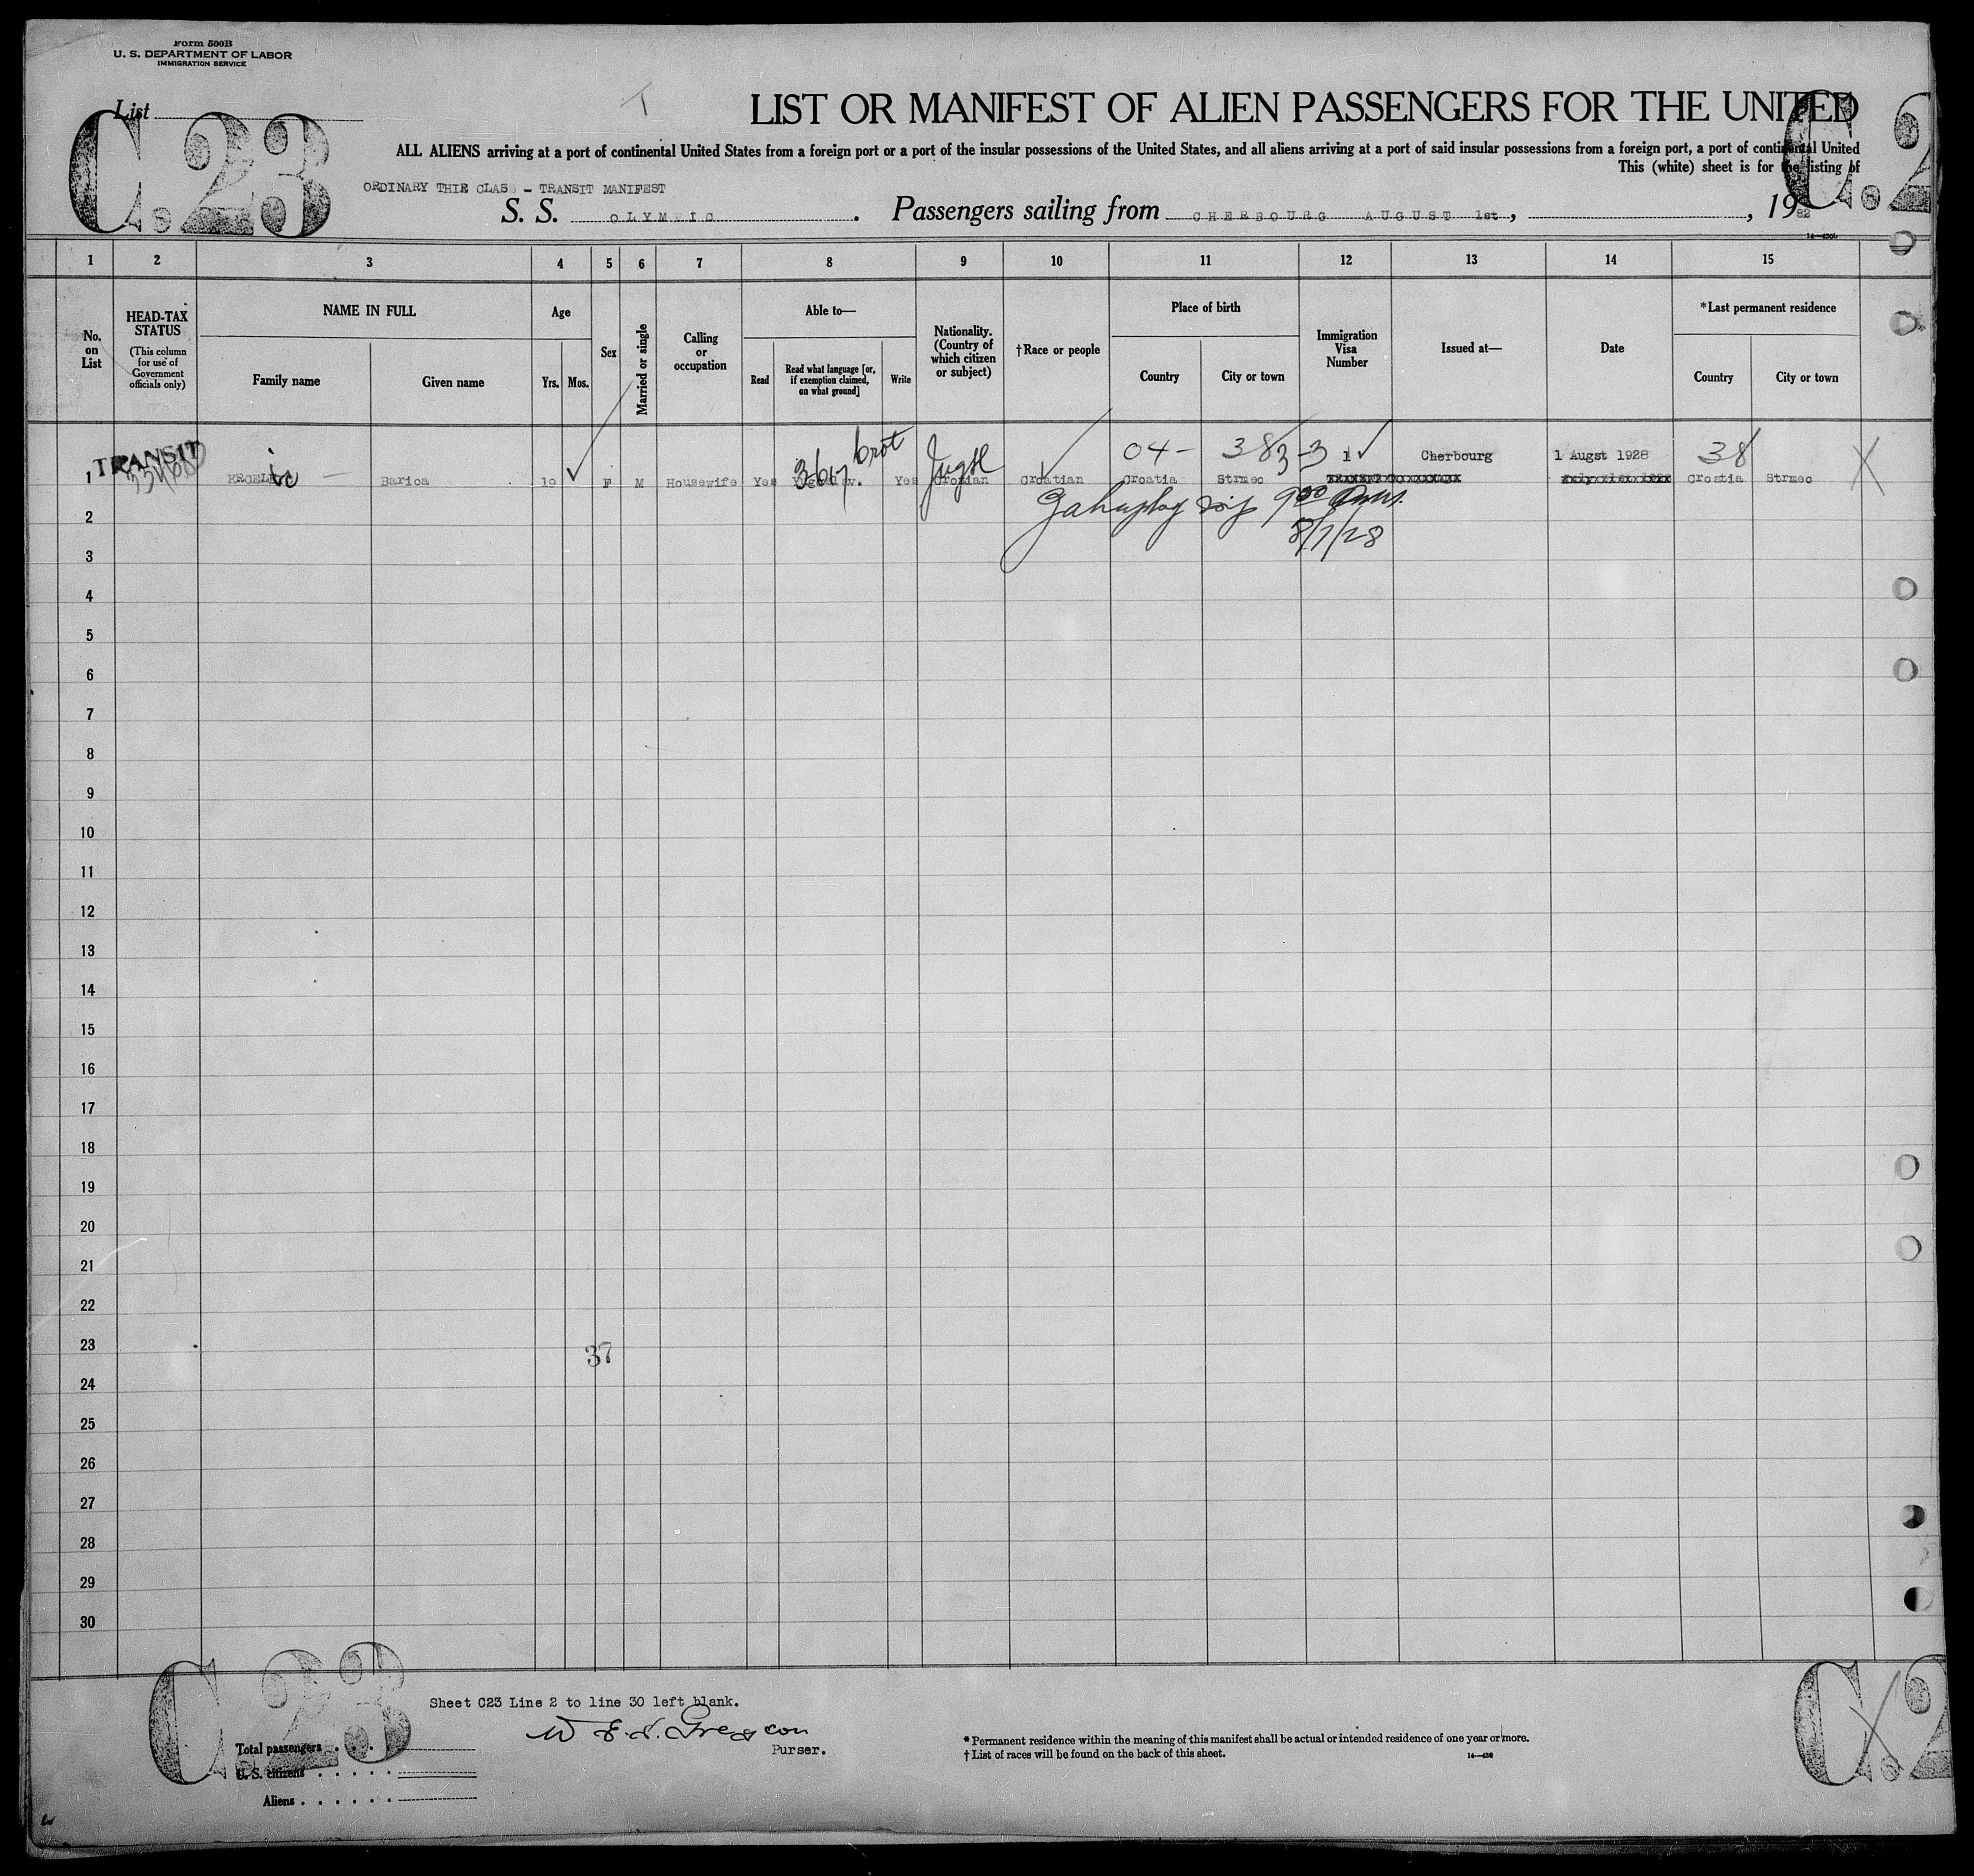 Form 500B
U. S. DEPARTMENT OF LABOR
IMMIGRATION SERVICE
List
C.23
LIST OR MANIFEST OF ALIEN PASSENGERS FOR THE UNITED
C.2
ALL ALIENS arriving at a port of continental United States from a foreign port or a port of the insular possessions of the United States, and all aliens arriving at a port of said insular possessions from a foreign port, a port of continental United
This (white) sheet is for the listing of
ORDINARY THIR CLASS - TRANSIT MANIFEST
S. S. OLYMPIC. Passengers sailing from CHERBOURG AUGUST 1st, , 1928
14—430b
1 2 3 4 5 6 7 8 9 10 11 12 13 14 15
No. on List
HEAD-TAX STATUS
(This column for use of Government officials only)
NAME IN FULL
Family name
Given name
Age
Yrs. Mos.
Sex
Married or single
Calling or occupation
Able to—
Read
Read what language [or, if exemption claimed, on what ground]
Write
Nationality. (Country of which citizen or subject)
†Race or people
Place of birth
Country
City or town
Immigration Visa Number
Issued at—
Date
*Last permanent residence
Country
City or town
TRANSIT
brot
Jugsl
04- 38 3-3 1 Cherbourg 1 Augst 1928 38
1 Barica 19 F M Housewife Yes Yugoslav. Yes Croatian Croatia Strmec Croatia Strmec
8/7/28
2
3
4
5
6
7
8
9
10
11
12
13
14
15
16
17
18
19
20
21
22
23
37
24
25
26
27
28
29
30
C.23
C.2
Sheet C23 Line 2 to line 30 left blank.
Purser.
Total passengers
U. S. citizens
Aliens
* Permanent residence within the meaning of this manifest shall be actual or intended residence of one year or more.
† List of races will be found on the back of this sheet.
14—430